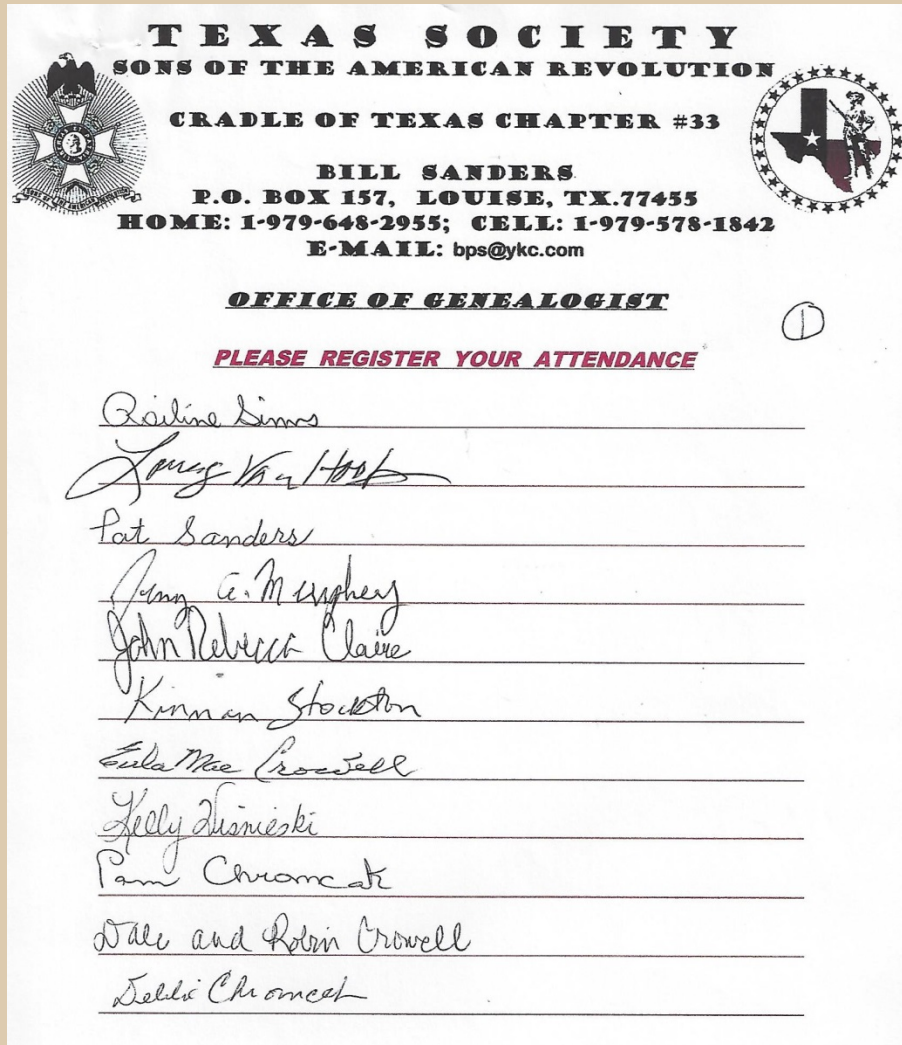 TEXAS SOCIETY
SONS OF THE AMERICAN REVOLUTION
CRADLE OF TEXAS CHAPTER #33
BILL SANDERS
P.O. BOX 157, LOUISE, TX.77455
HOME: 1-979-648-2955; CELL: 1-979-578-1842
E-MAIL: bps@ykc.com
OFFICE OF GENEALOGIST
1
PLEASE REGISTER YOUR ATTENDANCE
Sims
Van
Pat Sanders
A. Murphey
John Rebecca Claire
Kinnan Stockton
Eula Mae Crowell
Kelly Wisnieski
Pam Chromcak
Dale and Robin Crowell
Debbi